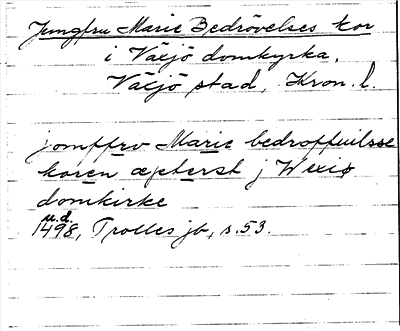 Jungfru Marie Bedrövelses kor
i Växjö domkyrka,
Växjö stad, Kron. l.
jomffrv Marie bedroffuilsse
koren æpterst j Wexiø
domkirke
u.d.
1498, Trolles jb, s. 53.